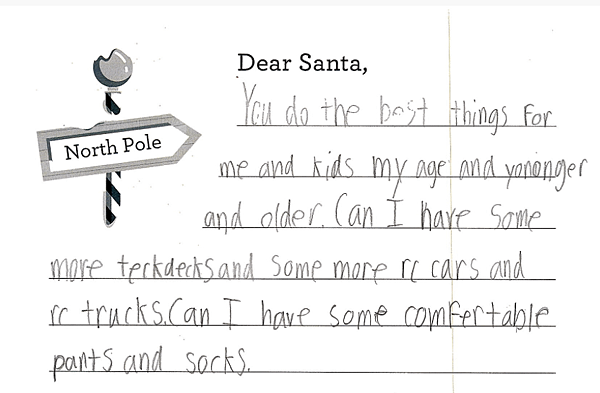 Dear Santa,
North Pole
You do the best things for
me and kids my age and yononger
and older. Can I have some
more teckdecks and some more rc cars and
rc trucks. Can I have some comfertable
pants and socks.